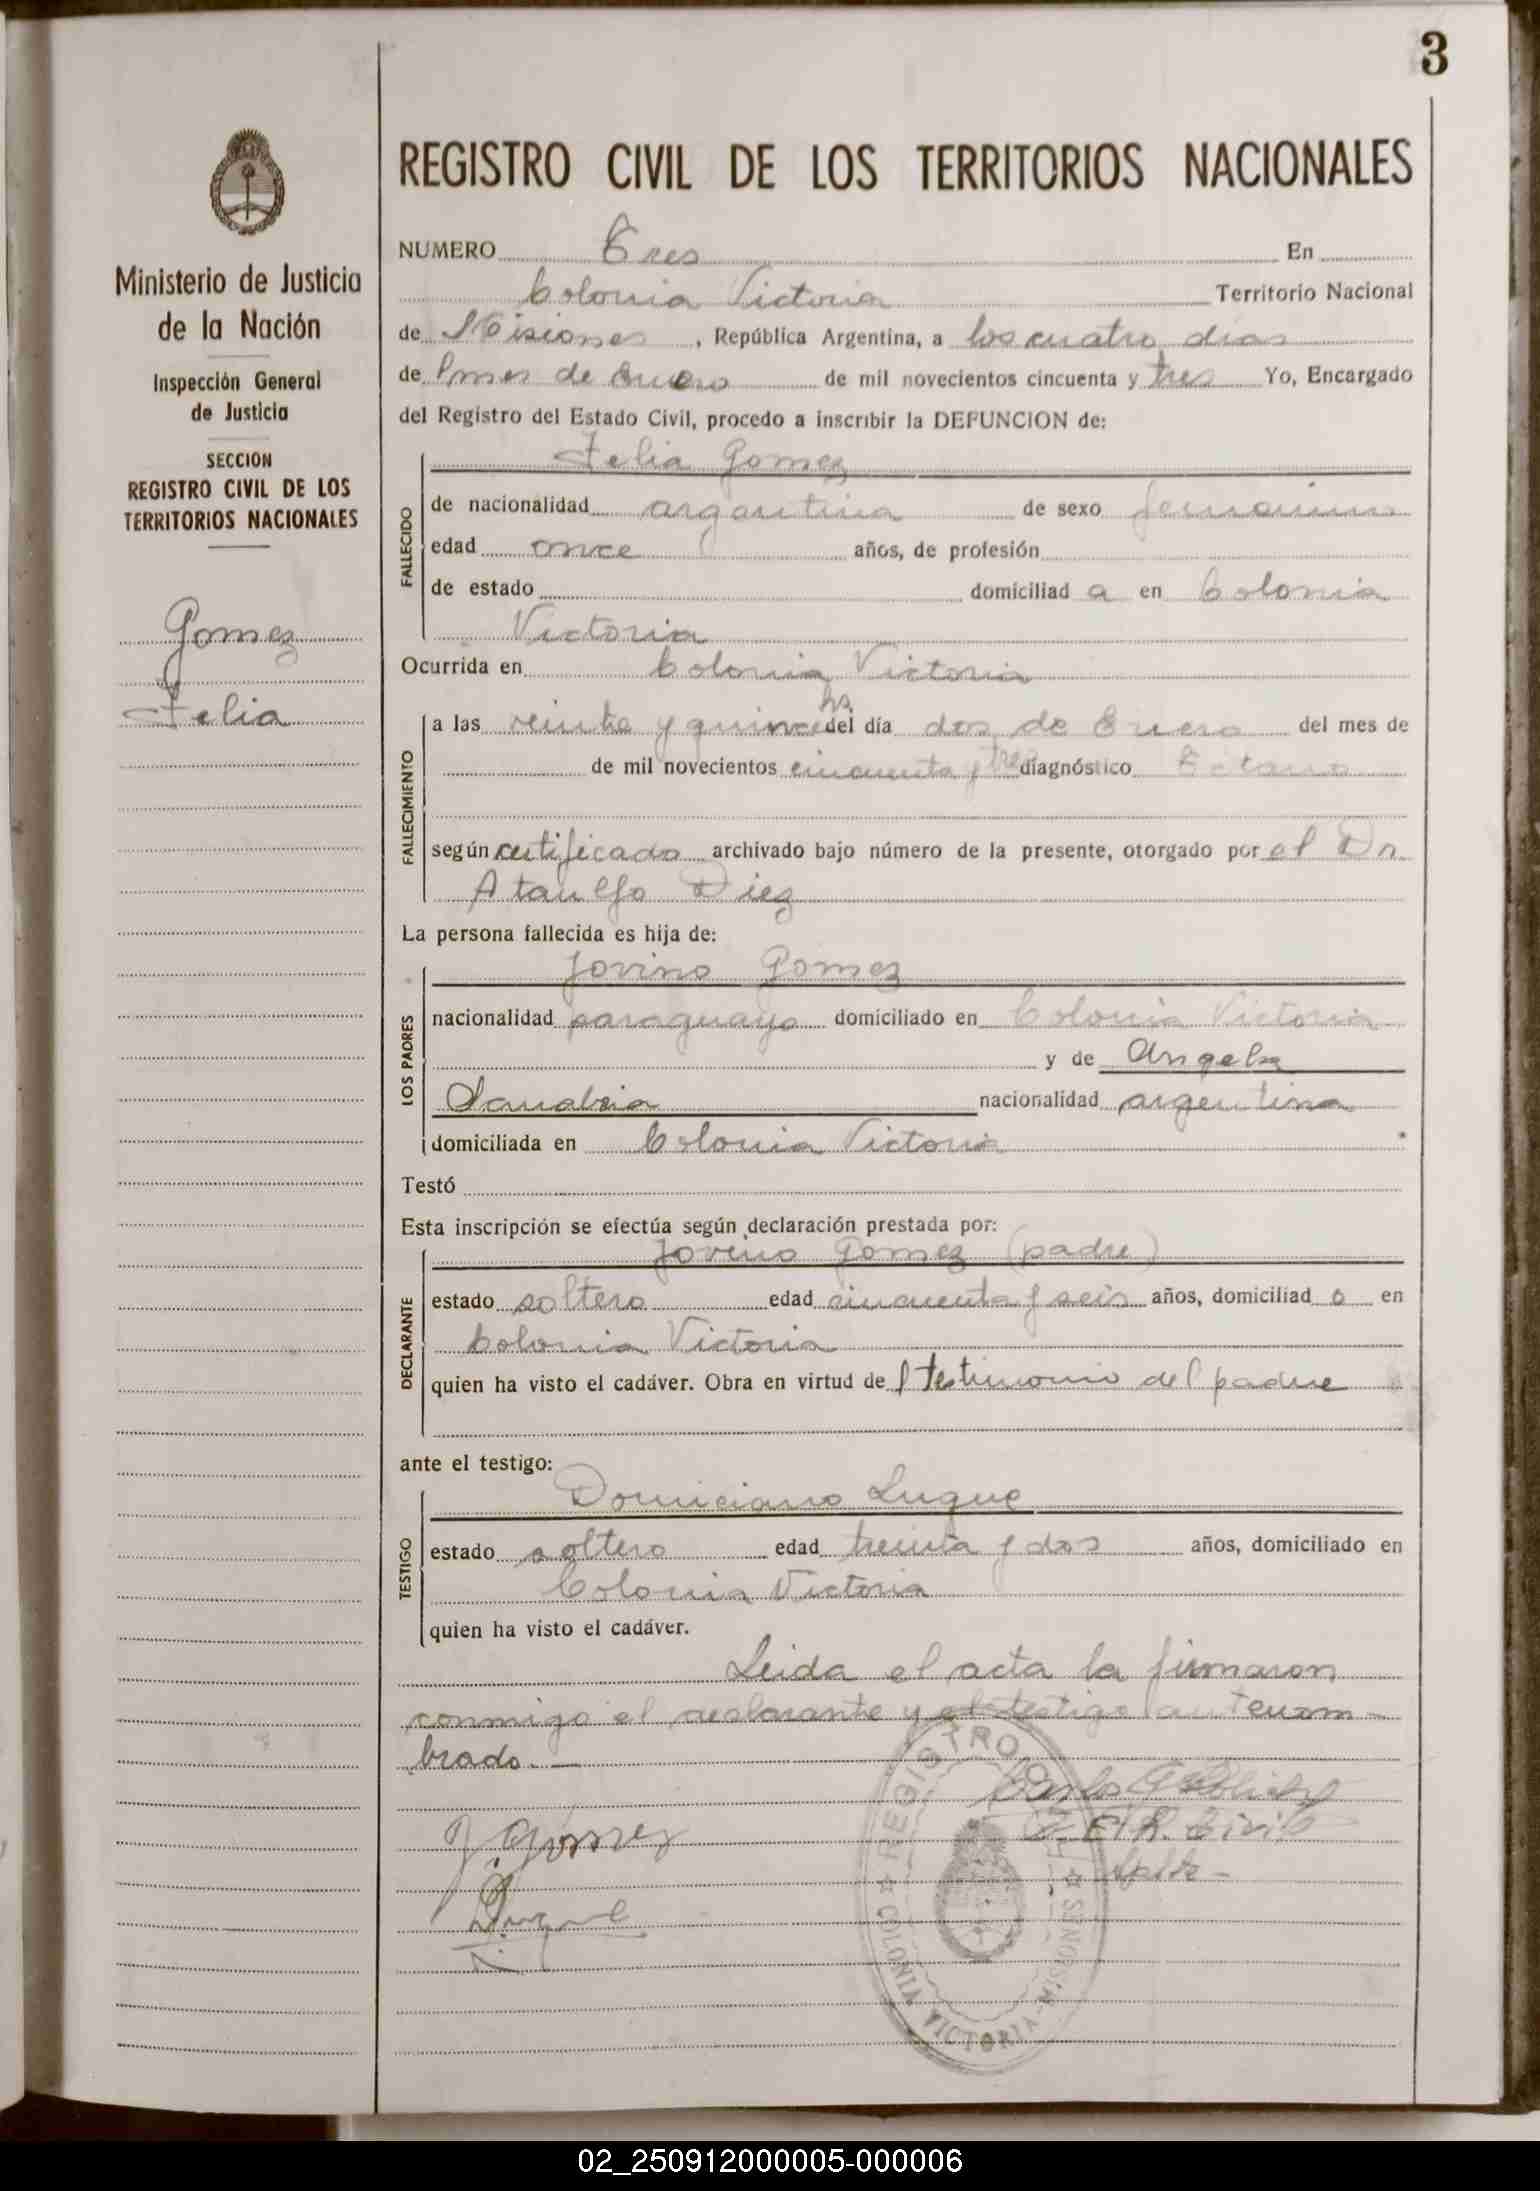 3
REGISTRO CIVIL DE LOS TERRITORIOS NACIONALES
Ministerio de Justicia
de la Nación
Inspección General
de Justicia
SECCION
REGISTRO CIVIL DE LOS
TERRITORIOS NACIONALES
Gomez
Felia
NUMERO Tres En
Colonia Victoria Territorio Nacional
de Misiones, República Argentina, a los cuatro dias
de mes de Enero de mil novecientos cincuenta y tres Yo, Encargado
del Registro del Estado Civil, procedo a inscribir la DEFUNCION de:
FALLECIDO
Felia Gomez
de nacionalidad argentina de sexo femenino
edad once años, de profesión
de estado domiciliad a en Colonia
Victoria
Ocurrida en Colonia Victoria
FALLECIMIENTO
a las veinte y quince hs del día dos de Enero del mes de
de mil novecientos cincuenta y tres diagnóstico Tetano
según certificado archivado bajo número de la presente, otorgado por el Dr.
Ataulfo Diez
La persona fallecida es hija de:
LOS PADRES
Jovino Gomez
nacionalidad paraguayo domiciliado en Colonia Victoria
y de Angela
Sanabria nacionalidad argentina
domiciliada en Colonia Victoria
Testó
Esta inscripción se efectúa según declaración prestada por:
DECLARANTE
Jovino Gomez (padre)
estado soltero edad cincuenta y seis años, domiciliad o en
Colonia Victoria
quien ha visto el cadáver. Obra en virtud de l testimonio del padre
ante el testigo:
TESTIGO
Domiciano Luque
estado soltero edad treinta y dos años, domiciliado en
Colonia Victoria
quien ha visto el cadáver.
Leida el acta la firmaron
conmigo el declarante y el testigo antenom-
brado.—
Carlos
E. R. Civil
J. Gomez
Luque
REGISTRO CIVIL
COLONIA VICTORIA - MISIONES
02_250912000005-000006